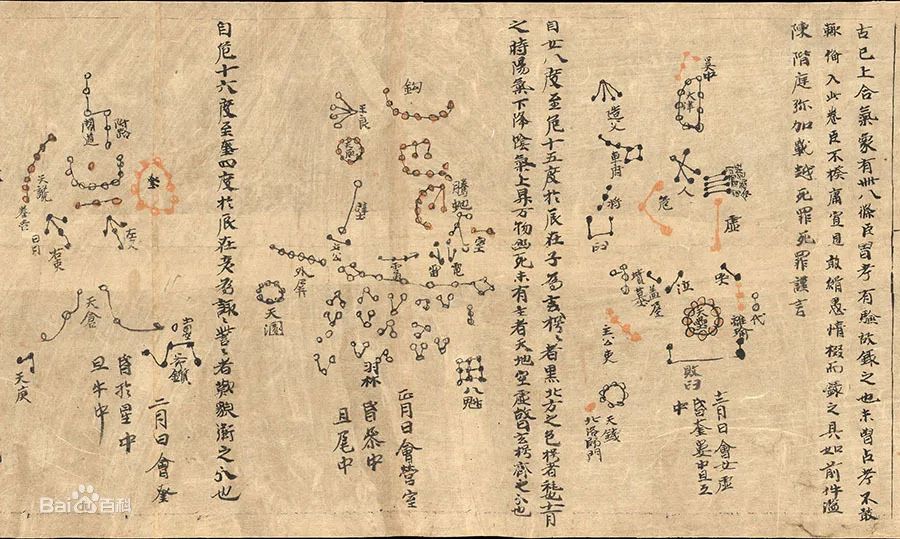 古已上合氣象有卌八條臣曽考有驗故錄之也未曽占考不敢
輒備入此卷臣不揆庸冝見敢緝愚情掇而錄之具如前件滥
陳階庭弥加戰越死罪死罪謹言
吴中
天津
造父
車府
人
危
杵
臼
虚
哭
泣
蓋屋
墳墓
天壘
離瑜
代
敗臼
主公吏
天錢
北落師門
十二月日會女虚
昏奎婁中旦互
中
自女八度至危十五度於辰在子為玄枵枵者黑北方之色枵者秏也十一月
之時陽氣下降陰氣上昇万物幽死未有生者天地空虚故曰玄枵齊之分也
鈎
王良
天廐
騰虵
壁
土公
雷
電
室
雲雨
外屏
天溷
羽林
八魁
正月日會營室
昏参中
旦尾中
自危十六度至奎四度於辰在亥為諏訾訾者歎貌衛之分也
閣道
附路
奎
天
軍
左更
右更
天倉
天庾
鈇鑕
二月日會奎
昏於星中
旦牛中
Baidu百科